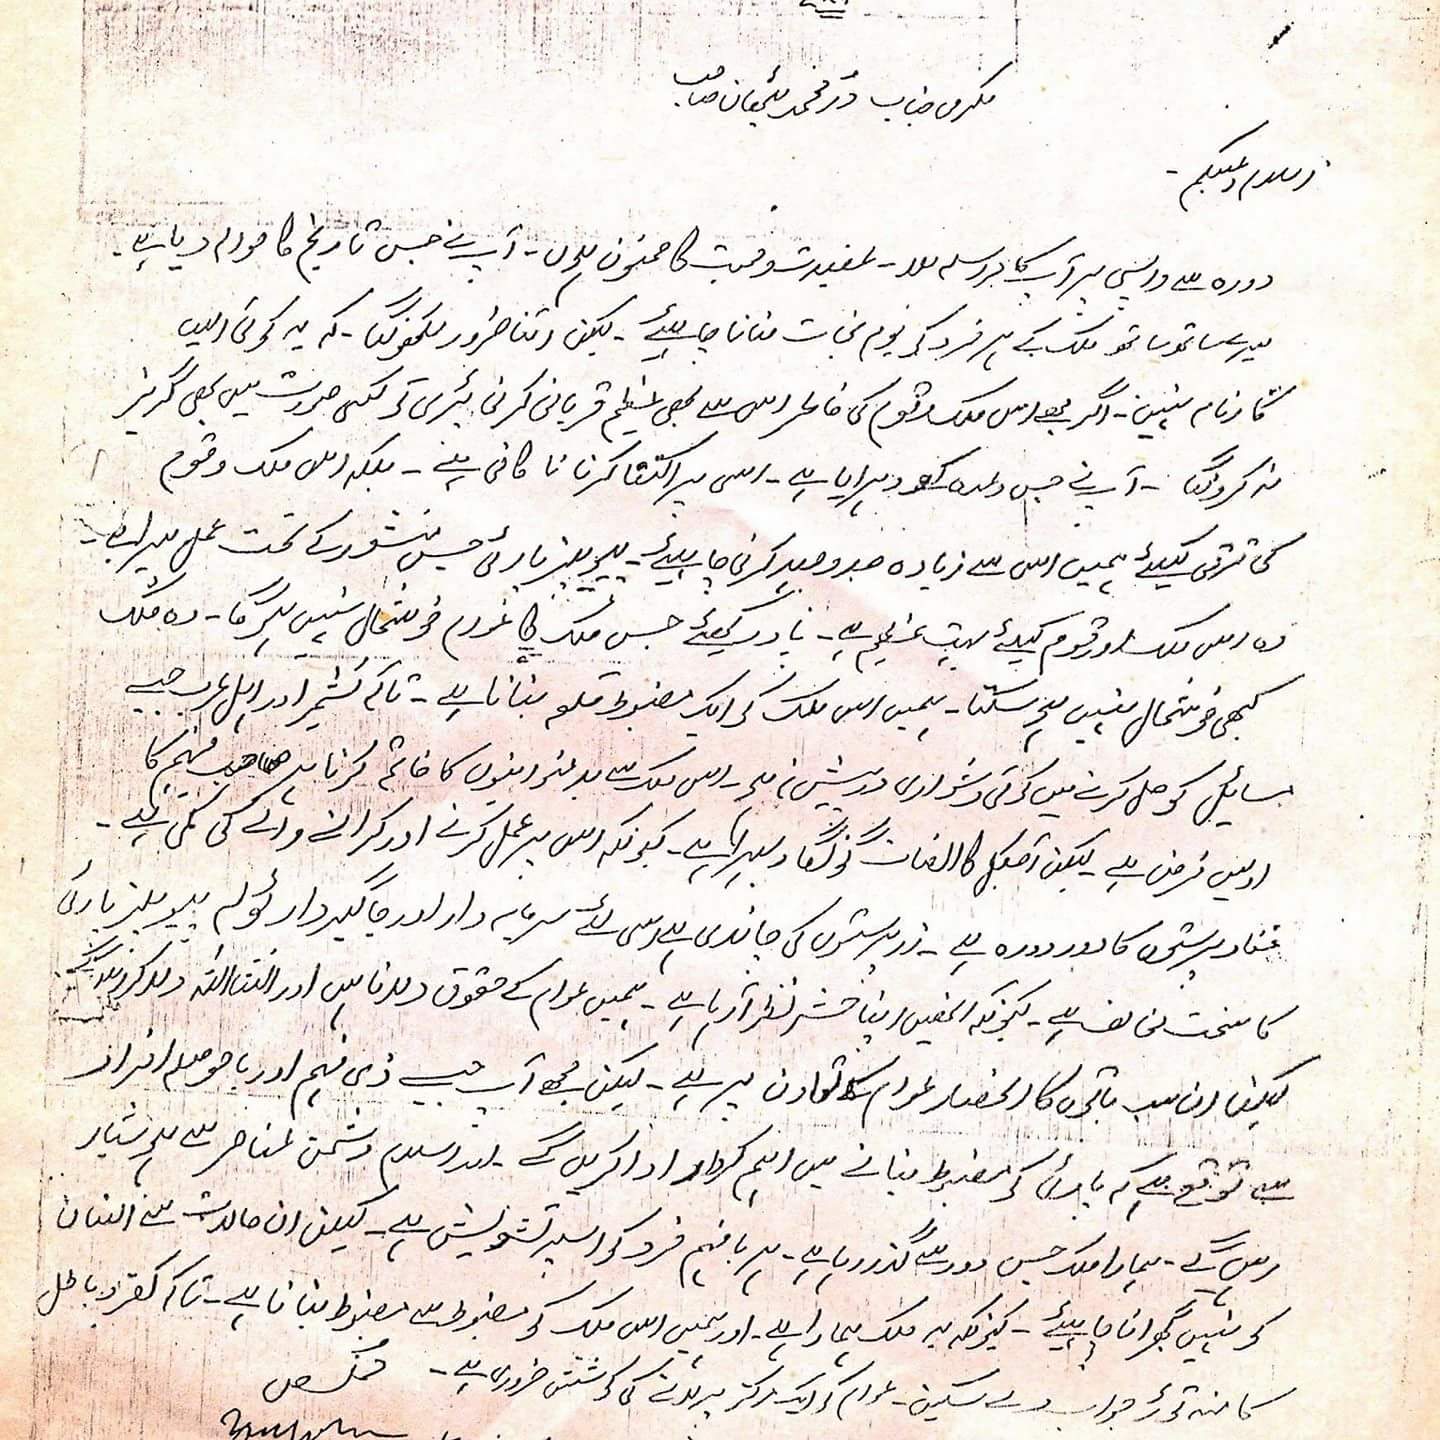 مکرمی جناب در محمد صاحب
السلام وعلیکم ۔
دورہ سے واپسی پر آپ کا مراسلہ ملا ۔ عقیدت و محبت کا ممنون ہوں ۔ آپ نے جس تاریخ کا حوالہ دیا ہے ۔
میرے ساتھ ساتھ ملک کے ہر فرد کو یوم نجات منانا چاہیئے ۔ لیکن اتنا ضرور لکھونگا ۔ کہ یہ کوئی ایسا
کارنامہ نہیں ۔ اگر مجھے اس ملک و قوم کی خاطر اس سے بھی عظیم قربانی کرنی پڑی تو کسی صورت میں بھی گریز
نہ کرونگا ۔ آپ نے جس وعدہ کو دہرایا ہے ۔ اسی پر اکتفا کرنا نا کافی ہے ۔ بلکہ اس ملک و قوم
کی ترقی کیلئے ہمیں اس سے زیادہ جدوجہد کرنی چاہیئے ۔ پیپلز پارٹی جس منشور کے تحت عمل پیرا ہے ۔
وہ اس ملک اور قوم کیلئے بہت عظیم ہے ۔ یاد رکھیئے جس ملک کا عوام خوشحال نہیں ہو گا ۔ وہ ملک
کبھی خوشحال نہیں ہو سکتا ۔ ہمیں اس ملک کو ایک مضبوط قلعہ بنانا ہے ۔ تاکہ کشمیر اور اہل عرب جیسے
مسائیل کو حل کرنے میں کوئی دشواری درپیش نہ ہو ۔ اس ملک سے بدعنوانیوں کا خاتمہ کرنا ہر صاحب فہم کا
اولین فرض ہے ۔ لیکن آجکل کا انصاف گونگا و بہرا ہے ۔ کیونکہ اس پر عمل کرنے اور کرانے والے کی کمی ہے ۔
مفاد پرستوں کا دور دورہ ہے ۔ زر پرستوں کی چاندی ہے اس لئے سرمایہ دار اور جاگیردار ٹولہ پیپلز پارٹی
کا سخت مخالف ہے ۔ کیونکہ انھیں اپنا حشر نظر آ رہا ہے ۔ ہمیں عوام کے حقوق دلانا ہیں اور انشااللہ دلا کر رہیں گے
لیکن ان سب باتوں کا انحصار عوام کے تعاون پر ہے ۔ لیکن مجھے آپ جیسے ذی فہم اور باحوصلہ افراد
سے توقع ہے کہ پارٹی کو مضبوط بنانے میں اہم کردار ادا کریں گے ۔ اور اسلام دشمن عناصر سے ہوشیار
رہیں گے ۔ ہمارا ملک جس دور سے گذر رہا ہے ۔ ہر با فہم فرد کو اسپر تشویش ہے ۔ لیکن ان حالات سے انسان
کو نہیں گھبرانا چاہیئے ۔ کیونکہ یہ ملک ہمارا ہے ۔ اور ہمیں اس ملک کو مضبوط سے مضبوط بنانا ہے ۔ تاکہ باطل
کا منہ توڑ جواب دے سکیں ۔ عوام کو ایک مرکز پر لانے کی کوشش ضروری ہے ۔
مخلص